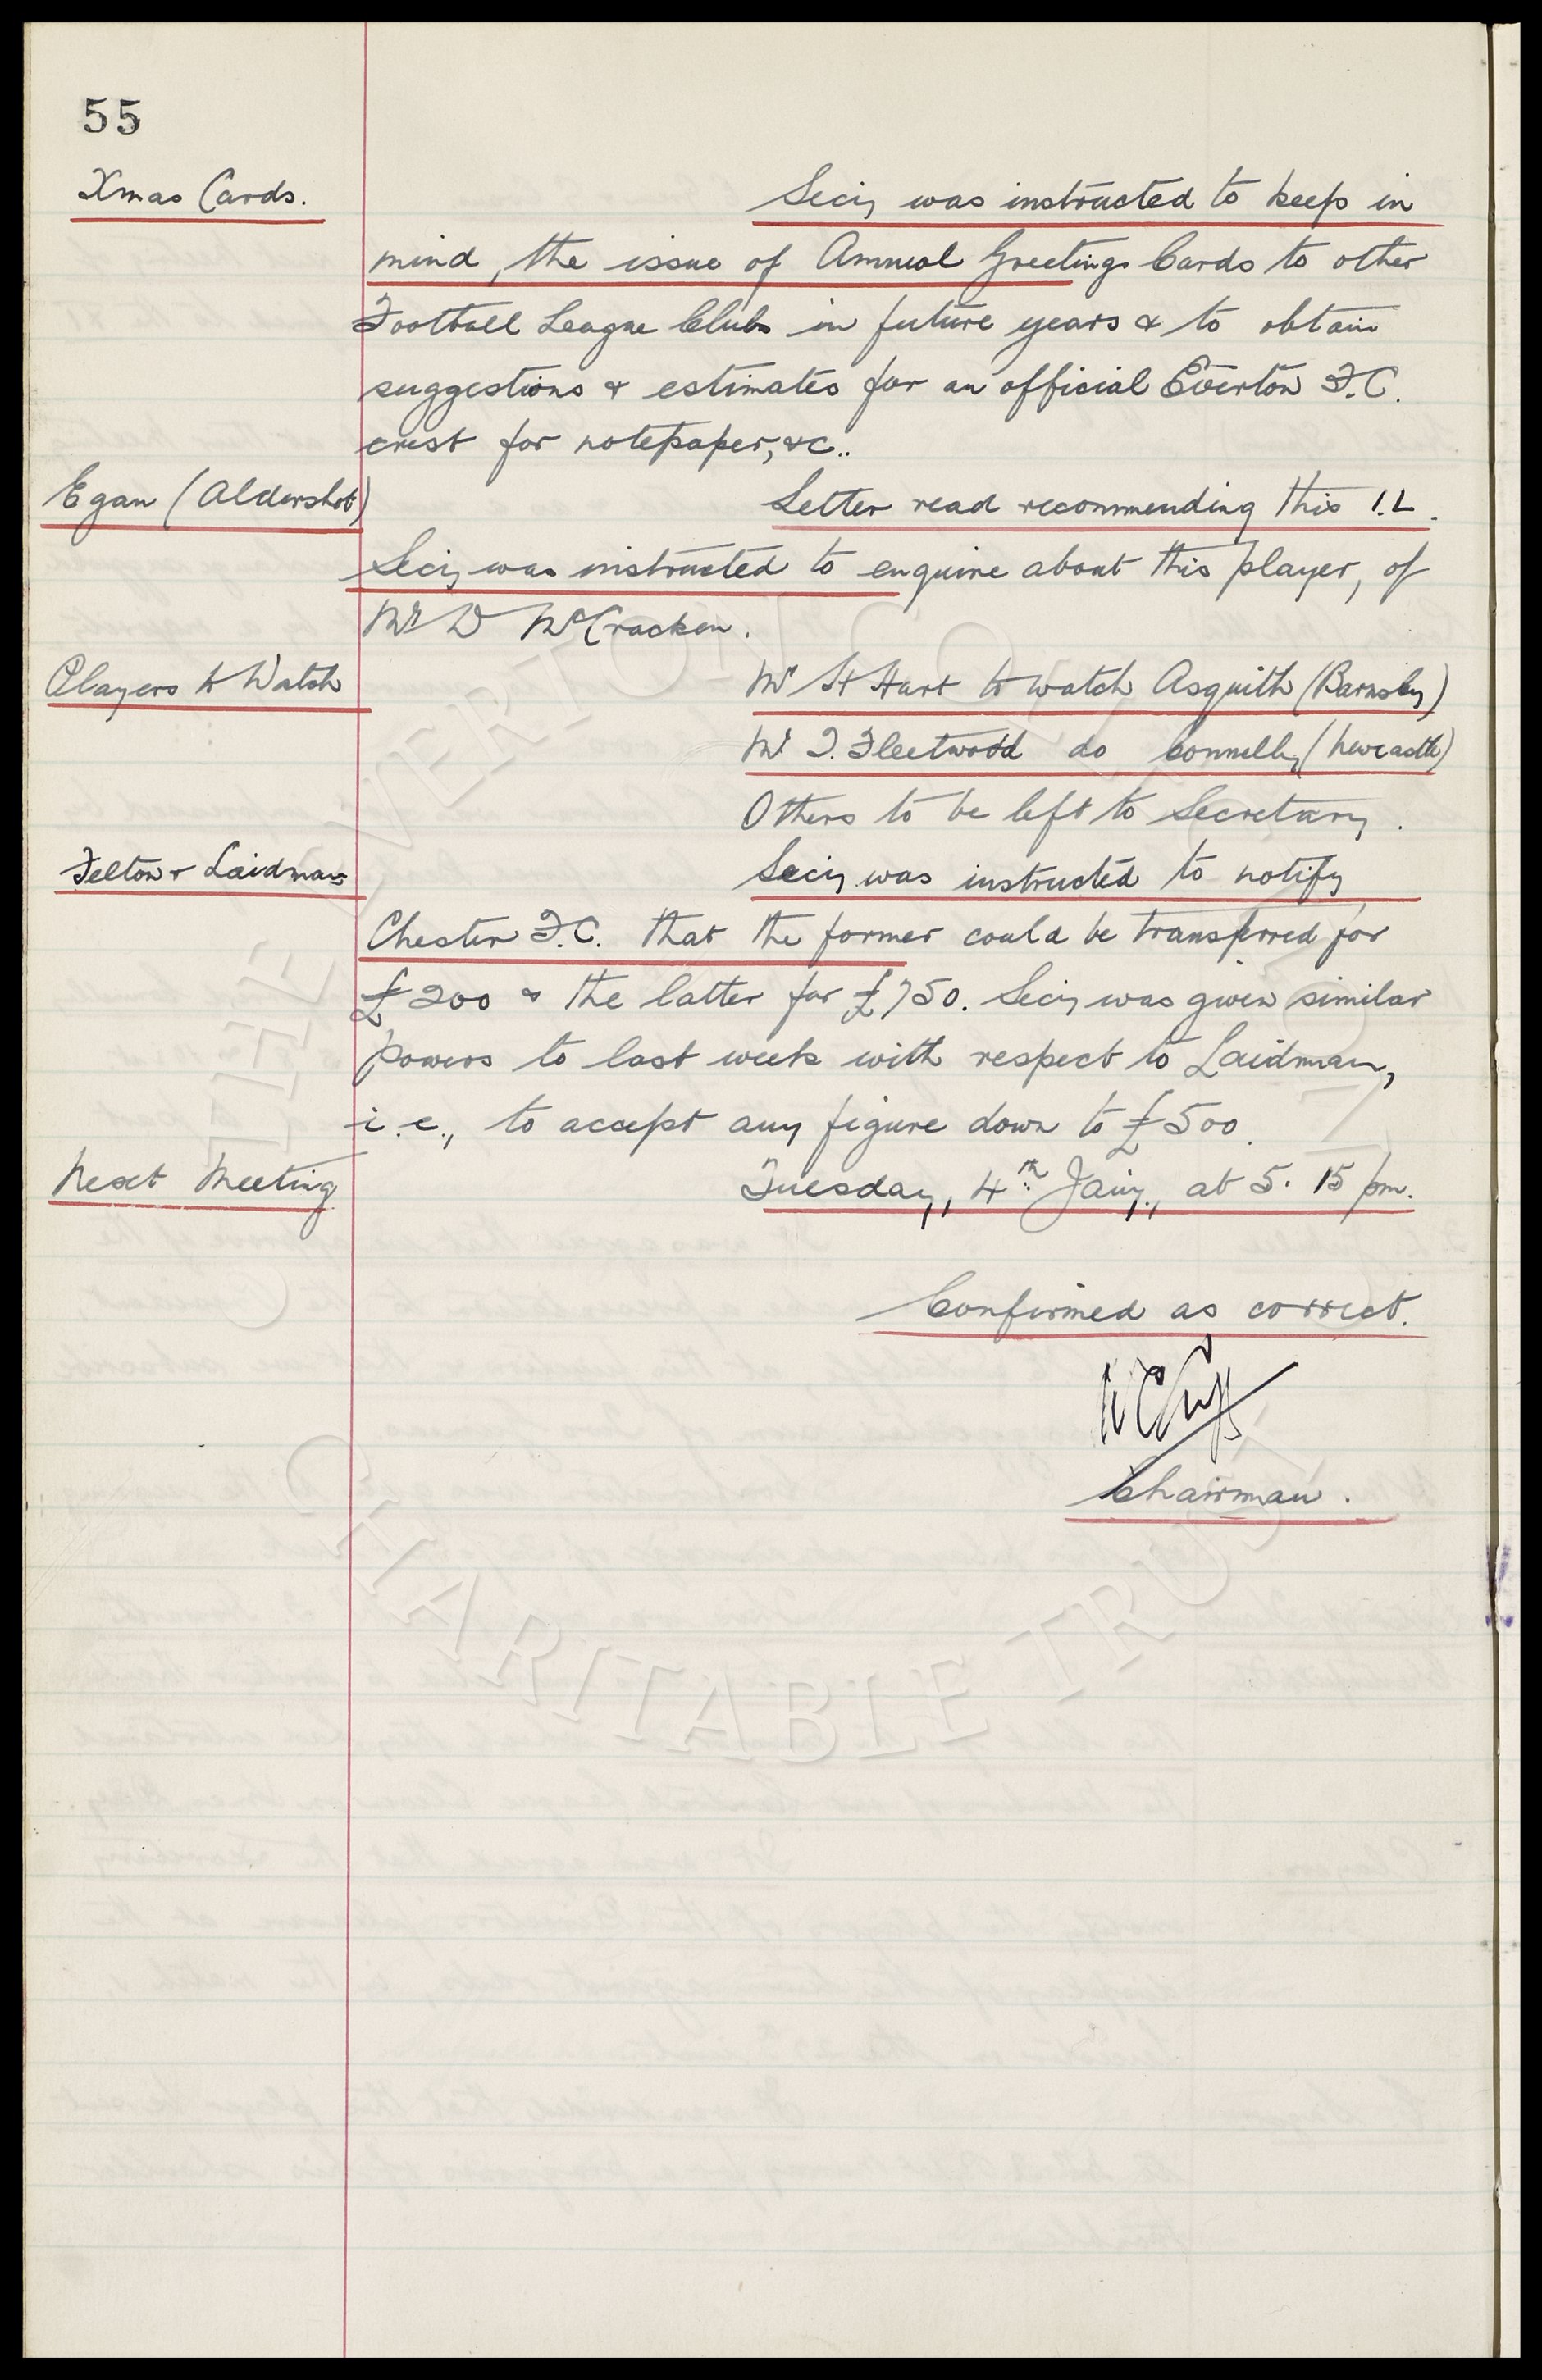 55
Xmas Cards. Secy was instructed to keep in
mind, the issue of Annual Greetings Cards to other
Football League Clubs in future years & to obtain
suggestions & estimates for an official Everton F.C.
crest for notepaper, &c..
Egan (Aldershot) Letter read recommending this I.L.
Secy was instructed to enquire about this player, of
Mr D McCracken.
Players to Watch Mr H Hart to watch Asquith (Barnsley)
Mr T. Fleetwood do Connelly (Newcastle)
Others to be left to Secretary.
Felton & Laidman Secy was instructed to notify
Chester F.C. that the former could be transferred for
£200 & the latter for £750. Secy was given similar
powers to last week with respect to Laidman,
i.e., to accept any figure down to £500.
Next Meeting Tuesday, 4th Jany., at 5.15 pm.
Confirmed as correct.
W C Cuff
Chairman.
THE EVERTON COLLECTION
CHARITABLE TRUST